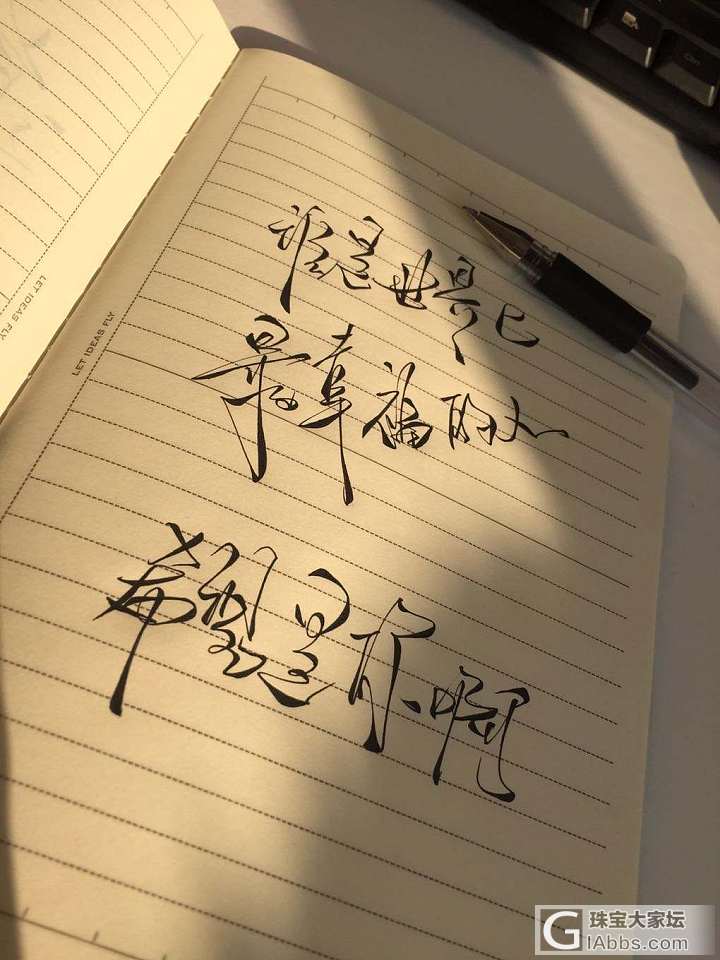 LET IDEAS FLY
LET IDEAS FLY
谁是世界上
最幸福的人
希望是你啊
珠宝大家坛
GIAbbs.com